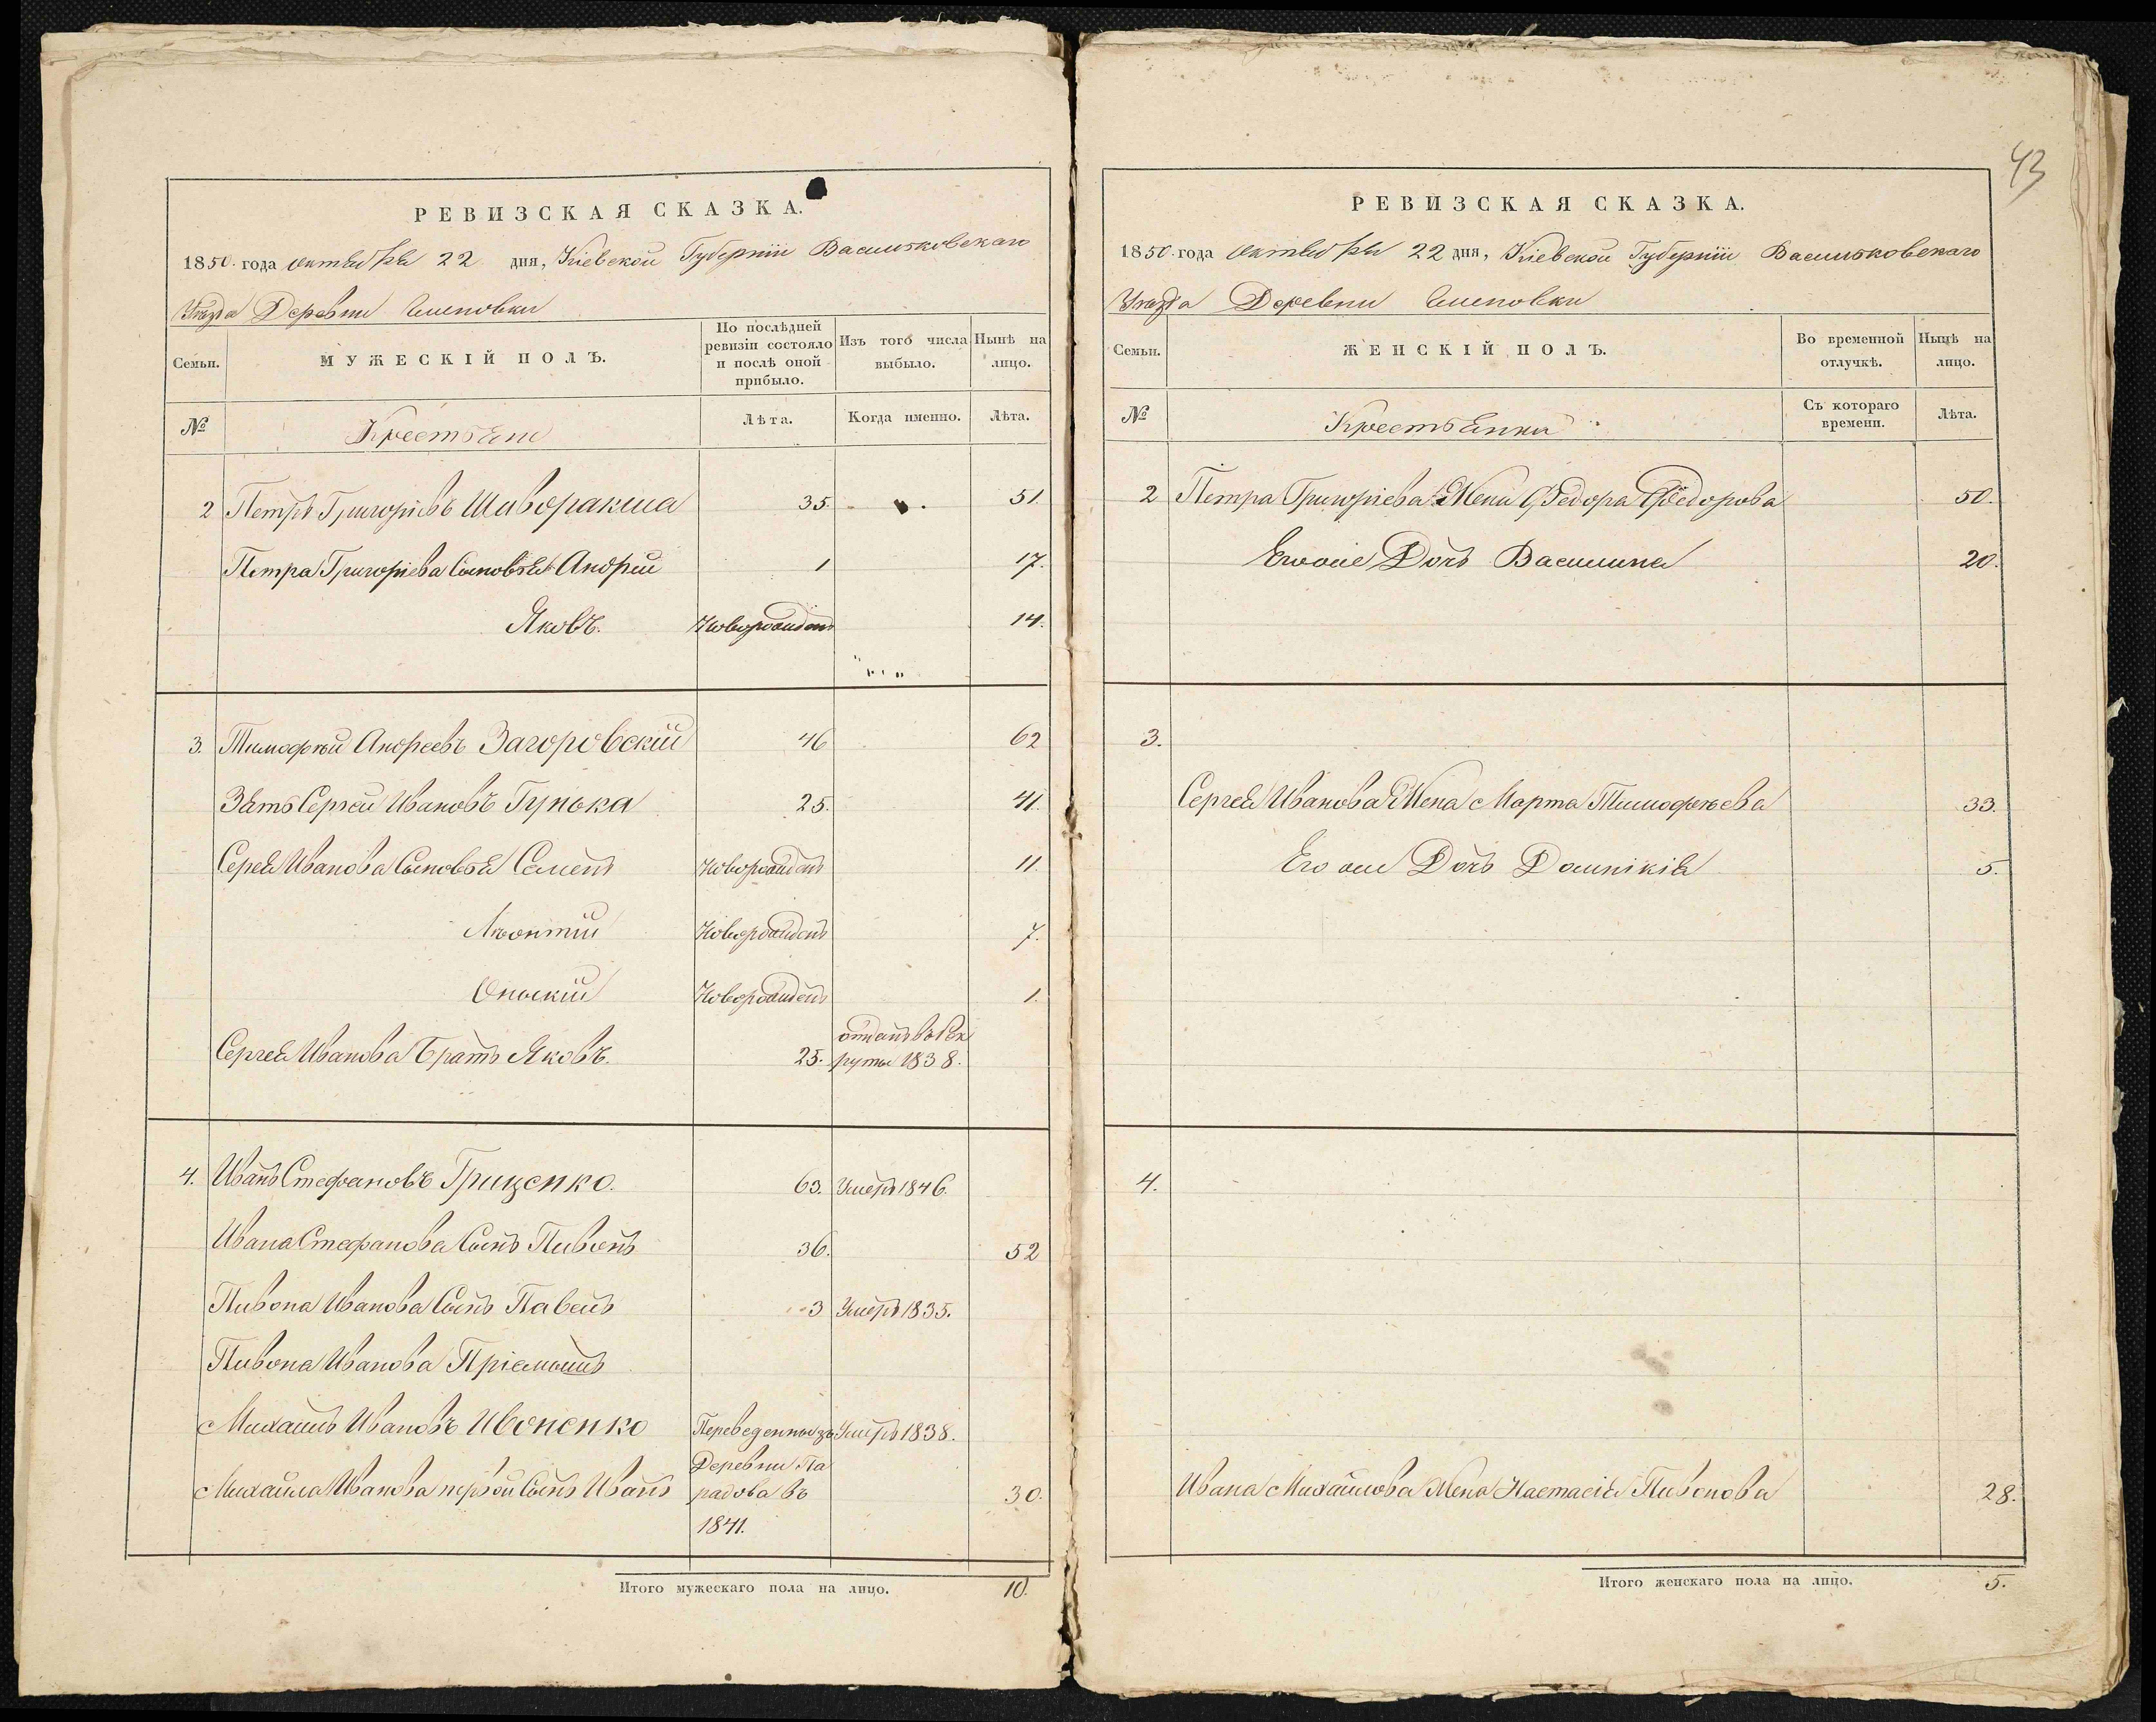 43
РЕВИЗСКАЯ СКАЗКА.
1850 года октября 22 дня, Кіевской Губерніи Васильковскаго
Уѣзда Деревни
Семьи.
МУЖЕСКІЙ ПОЛЪ.
По послѣдней ревизіи состояло и послѣ оной прибыло.
Изъ того числа выбыло.
Нынѣ на лицо.
№
Крестьяне
Лѣта.
Когда именно.
Лѣта.
2 Петръ Григорьевъ Шаворакша 35. 51.
Петра Григорьева Сыновья Андрей 1 17.
Яковъ. Новорожденъ 14.
3. Тимофѣй Андреевъ Загоровскій 46 62
Зять Сергѣй Ивановъ Гунька 25. 41.
Сергея Иванова Сыновья Семенъ Новорожденъ 11.
Новорожденъ 7.
Новорожденъ 1.
Сергея Иванова Братъ Яковъ. 25. отданъ въ Рекруты 1838.
4. Иванъ Стефановъ Гриценко. 63. Умеръ 1846.
Ивана Стефанова Сынъ Пивонъ 36. 52
Пивона Иванова Сынъ Павелъ 3 Умеръ 1835.
Пивона Иванова Пріемышъ
Михаилъ Ивановъ Ивоненко Переведенны изъ Умеръ 1838.
Деревни Па
Михайла Иванова первой Сынъ Иванъ радова въ 30.
1841.
Итого мужескаго пола на лицо. 10.
РЕВИЗСКАЯ СКАЗКА.
1850 года Октября 22 дня, Кіевской Губерніи Васильковскаго
Уѣзда Деревни
Семьи.
ЖЕНСКІЙ ПОЛЪ.
Во временной отлучкѣ.
Нынѣ на лицо.
№
Крестьянки
Съ котораго времени.
Лѣта.
2 Петра Григорьева Жена Федора Федорова 50.
Егоже Дочь Василина 20.
3.
Сергея Иванова Жена Марта Тимофѣева 33.
Его же Дочь Домникія 5.
4.
Ивана Михайлова Жена Настасія Пивонова 28.
Итого женскаго пола на лицо. 5.